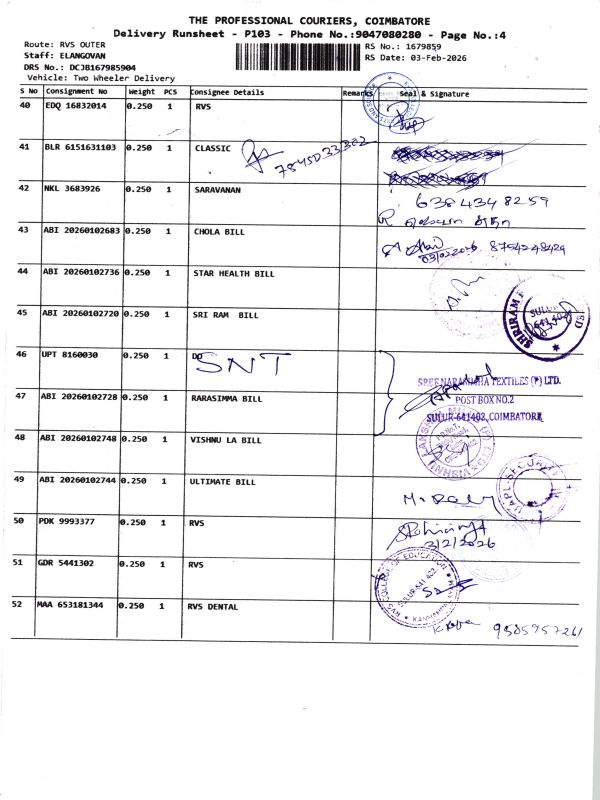 THE PROFESSIONAL COURIERS, COIMBATORE
Delivery Runsheet - P103 - Phone No.:9047080280 - Page No.:4
Route: RVS OUTER
RS No.: 1679859
Staff: ELANGOVAN
RS Date: 03-Feb-2026
DRS No.: DCJB167985904
Vehicle: Two Wheeler Delivery
S No Consignment No Weight PCS Consignee Details Remarks Seal & Signature
40 EDQ 16832014 0.250 1 RVS
41 BLR 6151631103 0.250 1 CLASSIC
42 NKL 3683926 0.250 1 SARAVANAN
638 434 8259
43 ABI 20260102683 0.250 1 CHOLA BILL
03/02/2026 8754248429
44 ABI 20260102736 0.250 1 STAR HEALTH BILL
45 ABI 20260102720 0.250 1 SRI RAM BILL
SHRIRAM
SULUR
641402
46 UPT 8160030 0.250 1 DO
SNT
SREE NARASIMHA TEXTILES (P) LTD.
47 ABI 20260102728 0.250 1 RARASIMMA BILL
POST BOX NO.2
SULUR-641402, COIMBATORE
48 ABI 20260102748 0.250 1 VISHNU LA BILL
49 ABI 20260102744 0.250 1 ULTIMATE BILL
UAPL-SECURITY
50 PDK 9993377 0.250 1 RVS
3/2/2026
51 GDR 5441302 0.250 1 RVS
RVS COLLEGE OF EDUCATION
SULUR-641 402
52 MAA 653181344 0.250 1 RVS DENTAL
9585957261